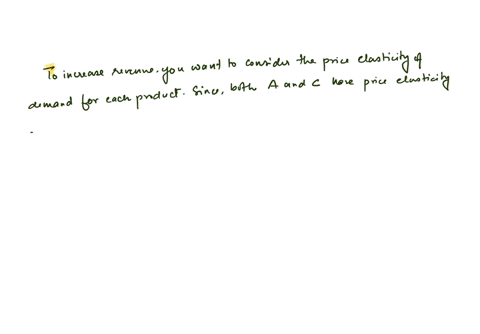 To increase revenue, you want to consider the price elasticity of
demand for each product. Since, both A and C have price elasticity